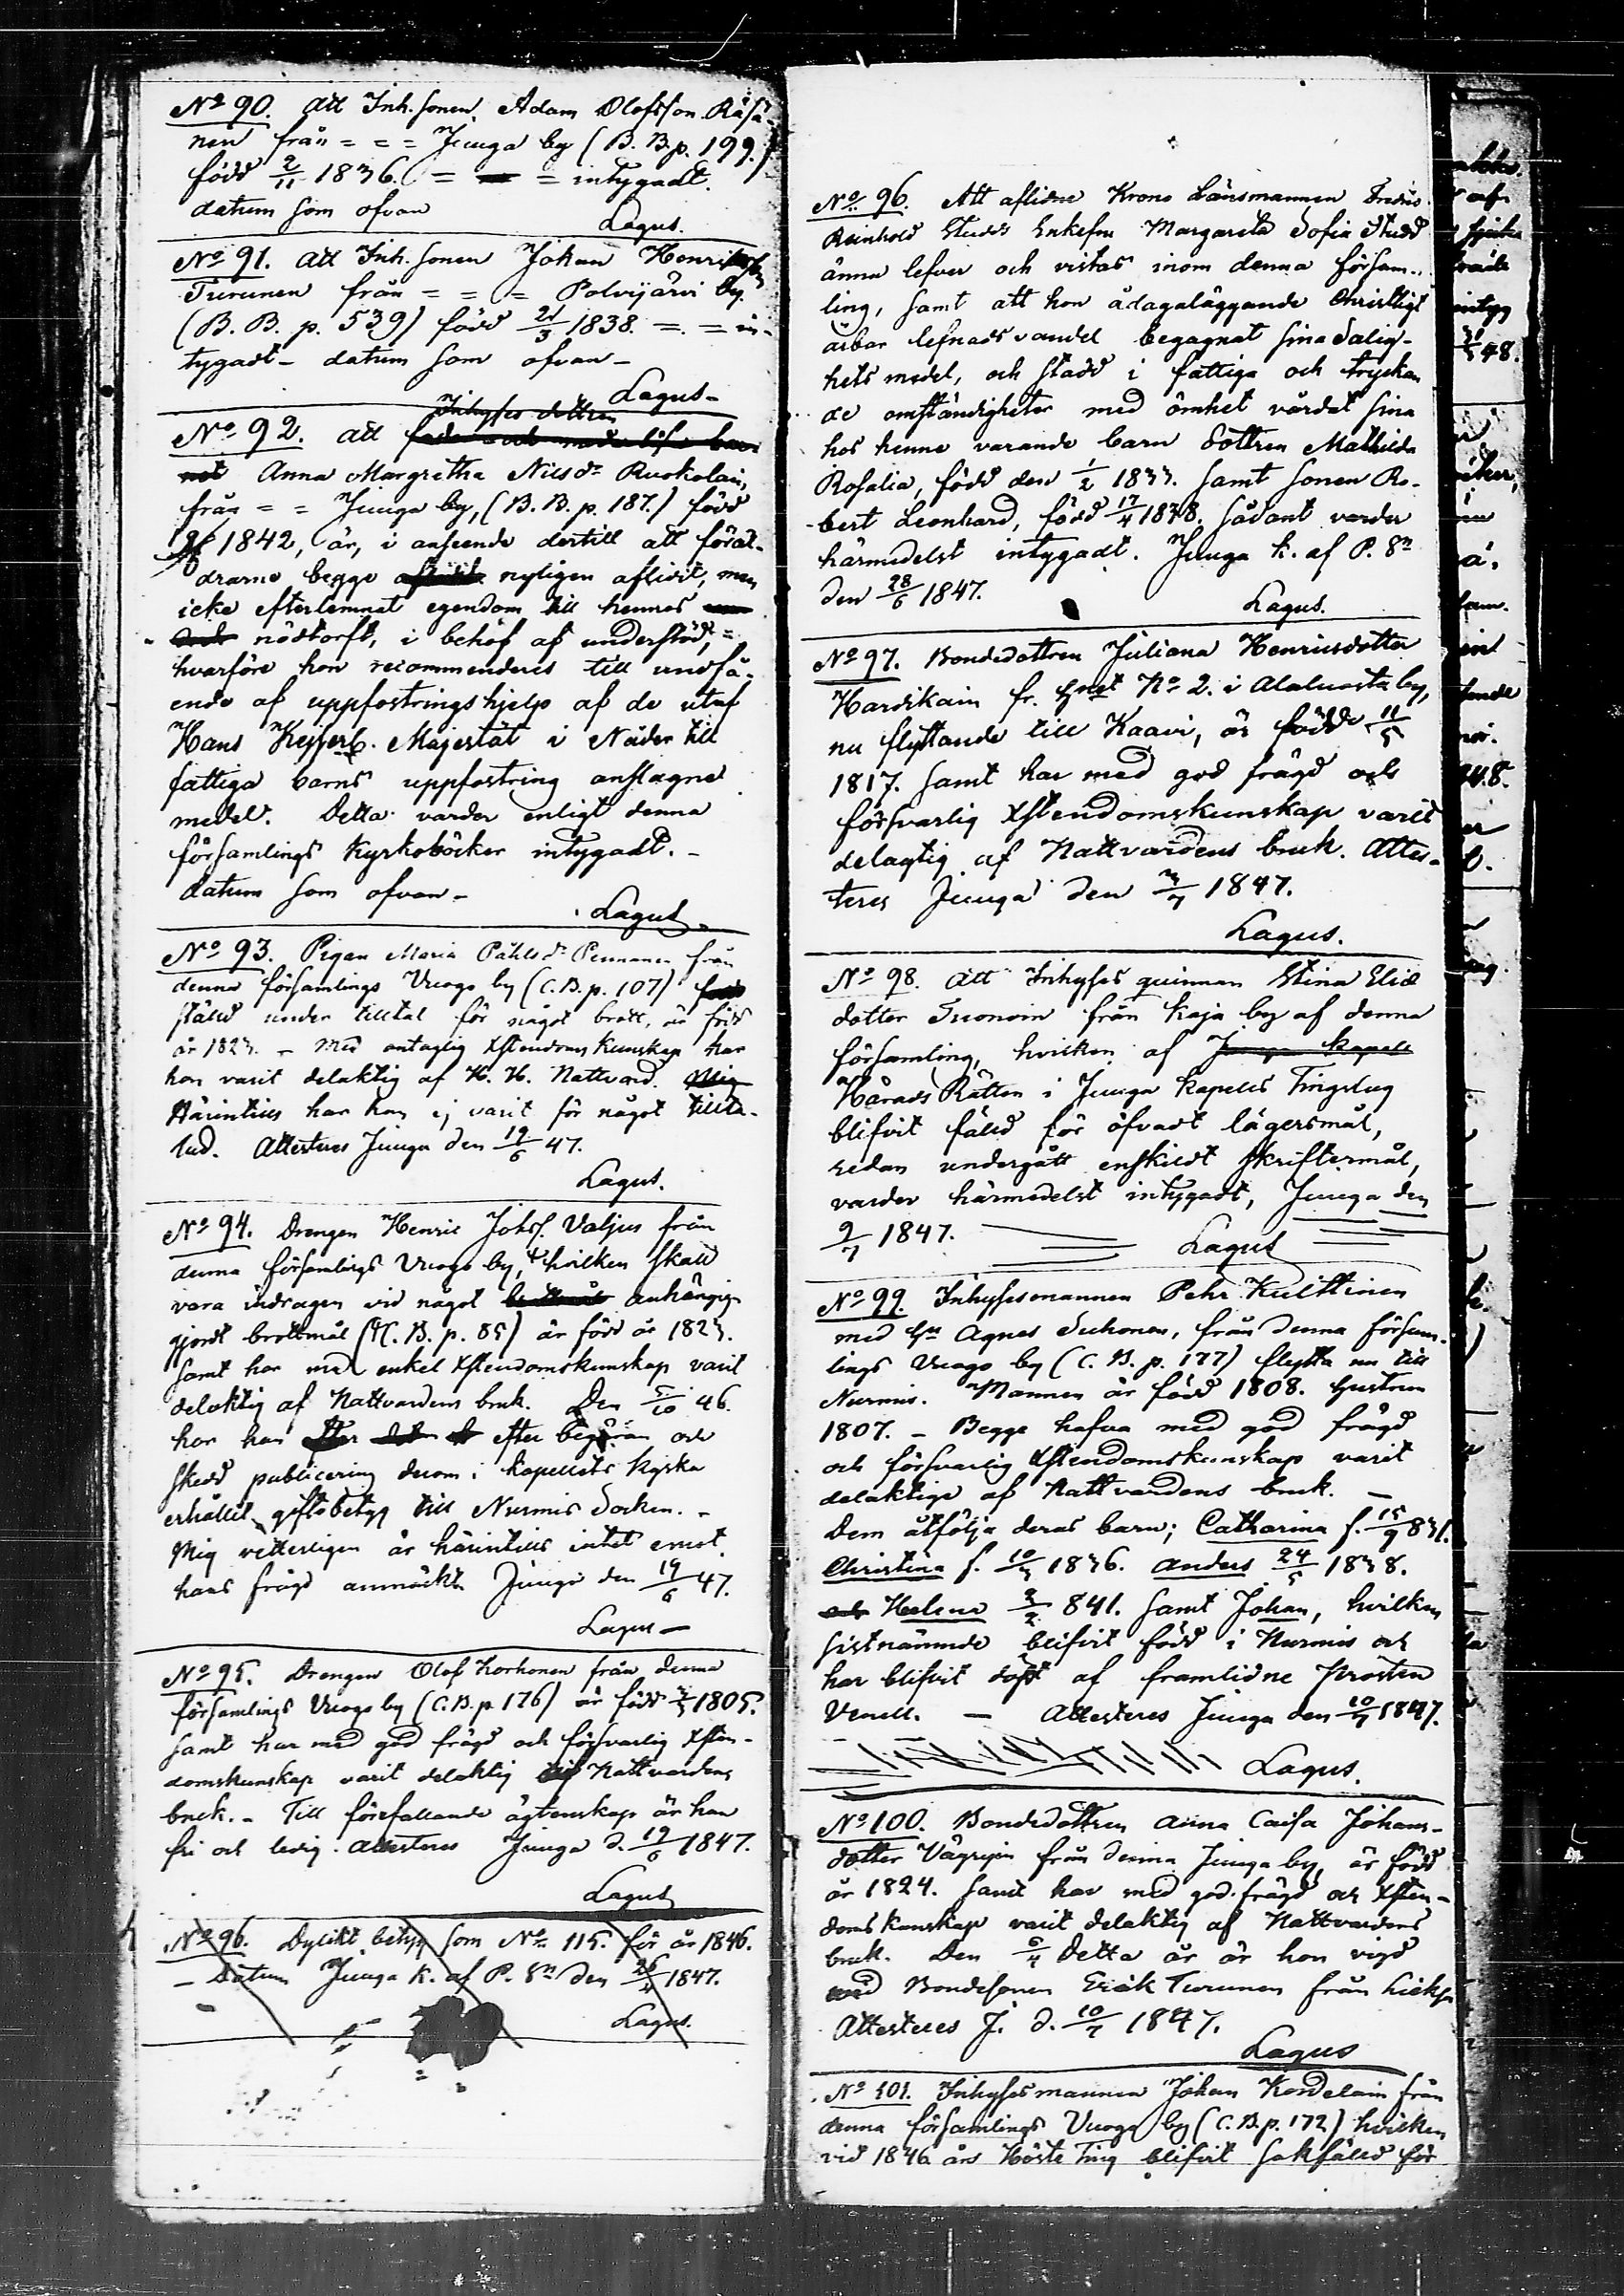 No 90. Att Inh. sonen Adam Olofsson Räsä-
nen från = = = Juuga by (B. B. p. 199.)
född 2/11 1836. = = intygadt.
datum som ofvan
Lagus.
No 91. Att Inh. sonen Johan Henriksson
Turunen från = = = Polvijärvi by.
(B. B. p. 539) född 21/3 1838. = = in-
tygadt - datum som ofvan -
Lagus -
Inhyses dottren
No 92. Att
Anna Margretha Nilsdr Ruokolain,
från = = Juuga by, (B. B. p. 187.) född
1842, är, i anseende dertill att föräl-
drarne begge nyligen aflidit, men
icke efterlemnat egendom till hennes
nödtorft, i behof af understöd, =
hvarföre hon recommenderes till undfå-
ende af uppfostringshjelp af de utaf
Hans Kejserl. Majestät i Nåder till
fattiga barns uppfostring anslagne
medel. Detta varder enligt denna
församlings Kyrkoböcker intygadt. -
datum som ofvan -
Lagus
No 93. Pigan Maria Påhlsdr Pennanen från
denna församlings Vuogo by (C. B. p. 107)
ställd under tilltal för något brott, är född
år 1823. - Med antaglig Xstendoms Kunskap har
hon varit delaktig af H. H. Nattvard.
Härintills har hon ej varit för något tillta-
lad. Attesteres Juuga den 19/6 47.
Lagus.
No 94. Drengen Henric Johss. Valjus från
denna församlings Vuogo by, hvilken skall
vara indragen vid något anhängig
gjordt brottmål (C. B. p. 85) är född år 1823.
samt har med enkel Xstendomskunskap varit
delaktig af Nattvardens bruk. Den 5/10 46.
har han efter begäran och
skedd publicering derom i Kapellets Kyrka
erhållit giftobetyg till Nurmis Socken. -
Mig vetterligen är härintills intet emot
hans frägd anmärkt. Juuga den 19/6 47.
Lagus -
No 95. Drengen Olof Korhonen från denna
församlings Vuogo by (C. B. p. 176) är född 1805.
samt har med god frägd och försvarlig Xsten-
domskunskap varit delaktig af Nattvardens
bruk. - Till förefallande ägtenskap är han
fri och ledig. Attesteres Juuga d. 19/6 1847.
Lagus
No 96. Dylikt betyg som No 115. för år 1846.
- Datum Juuga K. af P. Sn den 1847.
Lagus.
No 96. Att aflidne Krono Länsmannen Fredric
Reinhold Studds Enkefru Margareta Sofia Studd
ännu lefver och vistas inom denna försam-
ling, samt att hon ådagaläggande Christligt
ärbar lefnadsvandel begagnat sina Salig-
hets medel, och stadd i fattiga och tryckan
de omständigheter med ömhet vårdat sina
hos henne varande barn dottren Mathilda
Rosalia, född den 1/2 1833. samt sonen Ro-
bert Leonhard, född 17/4 1838. sådant varder
härmedelst intygadt. Juuga K. af P. Sn
den 28/6 1847.
Lagus.
No 97. Bondedottren Juliana Henricsdotter
Hardikain fr. Hmt No 2. i Alaluosta by,
nu flyttande till Kaavi, är född 11/5
1817. samt har med god frägd och
försvarlig Xstendomskunskap varit
delagtig af Nattvardens bruk. Attes-
teres Juuga den 3/7 1847.
Lagus.
No 98. Att Inhyses quinnan Stina Elias
dotter Tuonoin från Kaja by af denna
församling, hvilken af Juuga Kapell
Härads Rätten i Juuga Kapells Tingslag
blifvit fälld för öfvadt lägersmål,
sedan undergått enskildt skriftermål,
varder härmedelst intygadt, Juuga den
9/7 1847.
Lagus
No 99. Inhysesmannen Pehr Kulttinen
med Hu Agnes Suhonen, från denna försam-
lings Vuogo by (C. B. p. 177) flytta nu till
Nurmis. Mannen är född 1808. Hustrun
1807. - Begge hafva med god frägd
och försvarlig Xstendomskunskap varit
delaktige af Nattvardens bruk. -
Dem åtfölja deras barn; Catharina f. 15/9 831.
Christina f. 10/3 1836. Anders 24/5 1838.
och Helena 2/2 841. samt Johan, hvilken
sistnämnde blifvit född i Nurmis och
har blifvit döpt af framlidne Prosten
Venell. - Attesteres Juuga den 10/7 1847.
Lagus.
No 100. Bondedottren Anna Caisa Johans-
dotter Vägryin från denna Juuga by, är född
år 1824. samt har med god frägd och Xsten-
doms kunskap varit delaktig af Nattvardens
bruk. Den 6/4 detta år är hon vigd
med Bondesonen Erick Turunen från Lieksa
Attesteres J. d. 10/7 1847.
Lagus
No 101. Inhysesmannen Johan Kordelain från
denna församlings Vuogo by (C. B. p. 172) hvilken
vid 1846 års Höste Ting blifvit sakfälld för